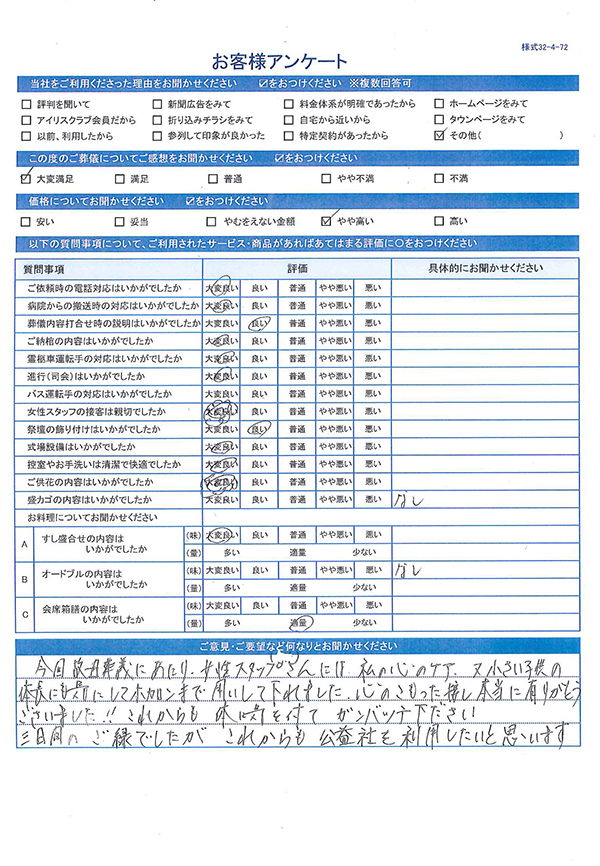 様式32-4-72
お客様アンケート
当社をご利用くださった理由をお聞かせください ☑をおつけください ※複数回答可
□ 評判を聞いて □ 新聞広告をみて □ 料金体系が明確であったから □ ホームページをみて
□ アイリスクラブ会員だから □ 折り込みチラシをみて □ 自宅から近いから □ タウンページをみて
□ 以前、利用したから □ 参列して印象が良かった □ 特定契約があったから ☑ その他( )
この度のご葬儀についてご感想をお聞かせください ☑をおつけください
☑ 大変満足 □ 満足 □ 普通 □ やや不満 □ 不満
価格についてお聞かせください ☑をおつけください
□ 安い □ 妥当 □ やむをえない金額 ☑ やや高い □ 高い
以下の質問事項について、ご利用されたサービス・商品があればあてはまる評価に○をおつけください
質問事項 評価 具体的にお聞かせください
ご依頼時の電話対応はいかがでしたか 大変良い 良い 普通 やや悪い 悪い
病院からの搬送時の対応はいかがでしたか 大変良い 良い 普通 やや悪い 悪い
葬儀内容打合せ時の説明はいかがでしたか 大変良い 良い 普通 やや悪い 悪い
ご納棺の内容はいかがでしたか 大変良い 良い 普通 やや悪い 悪い
霊柩車運転手の対応はいかがでしたか 大変良い 良い 普通 やや悪い 悪い
進行(司会)はいかがでしたか 大変良い 良い 普通 やや悪い 悪い
バス運転手の対応はいかがでしたか 大変良い 良い 普通 やや悪い 悪い
女性スタッフの接客は親切でしたか 大変良い 良い 普通 やや悪い 悪い
祭壇の飾り付けはいかがでしたか 大変良い 良い 普通 やや悪い 悪い
式場設備はいかがでしたか 大変良い 良い 普通 やや悪い 悪い
控室やお手洗いは清潔で快適でしたか 大変良い 良い 普通 やや悪い 悪い
ご供花の内容はいかがでしたか 大変良い 良い 普通 やや悪い 悪い
盛カゴの内容はいかがでしたか 大変良い 良い 普通 やや悪い 悪い なし
お料理についてお聞かせください
A すし盛合せの内容は (味) 大変良い 良い 普通 やや悪い 悪い
いかがでしたか (量) 多い 適量 少ない
B オードブルの内容は (味) 大変良い 良い 普通 やや悪い 悪い なし
いかがでしたか (量) 多い 適量 少ない
C 会席箱膳の内容は (味) 大変良い 良い 普通 やや悪い 悪い
いかがでしたか (量) 多い 適量 少ない
ご意見・ご要望など何なりとお聞かせください
今回 葬儀にあたり、女性スタッフ さんには 私の心のケア、又小さい子供の
体長にも気にしてホカロンまで用いして下れました、心のこもった接し本当に有りがとう
ございました!! これからも 体に気を付て ガンバッテ下ださい
三日間の ご縁でしたが これからも 公益社を利用したいと思います